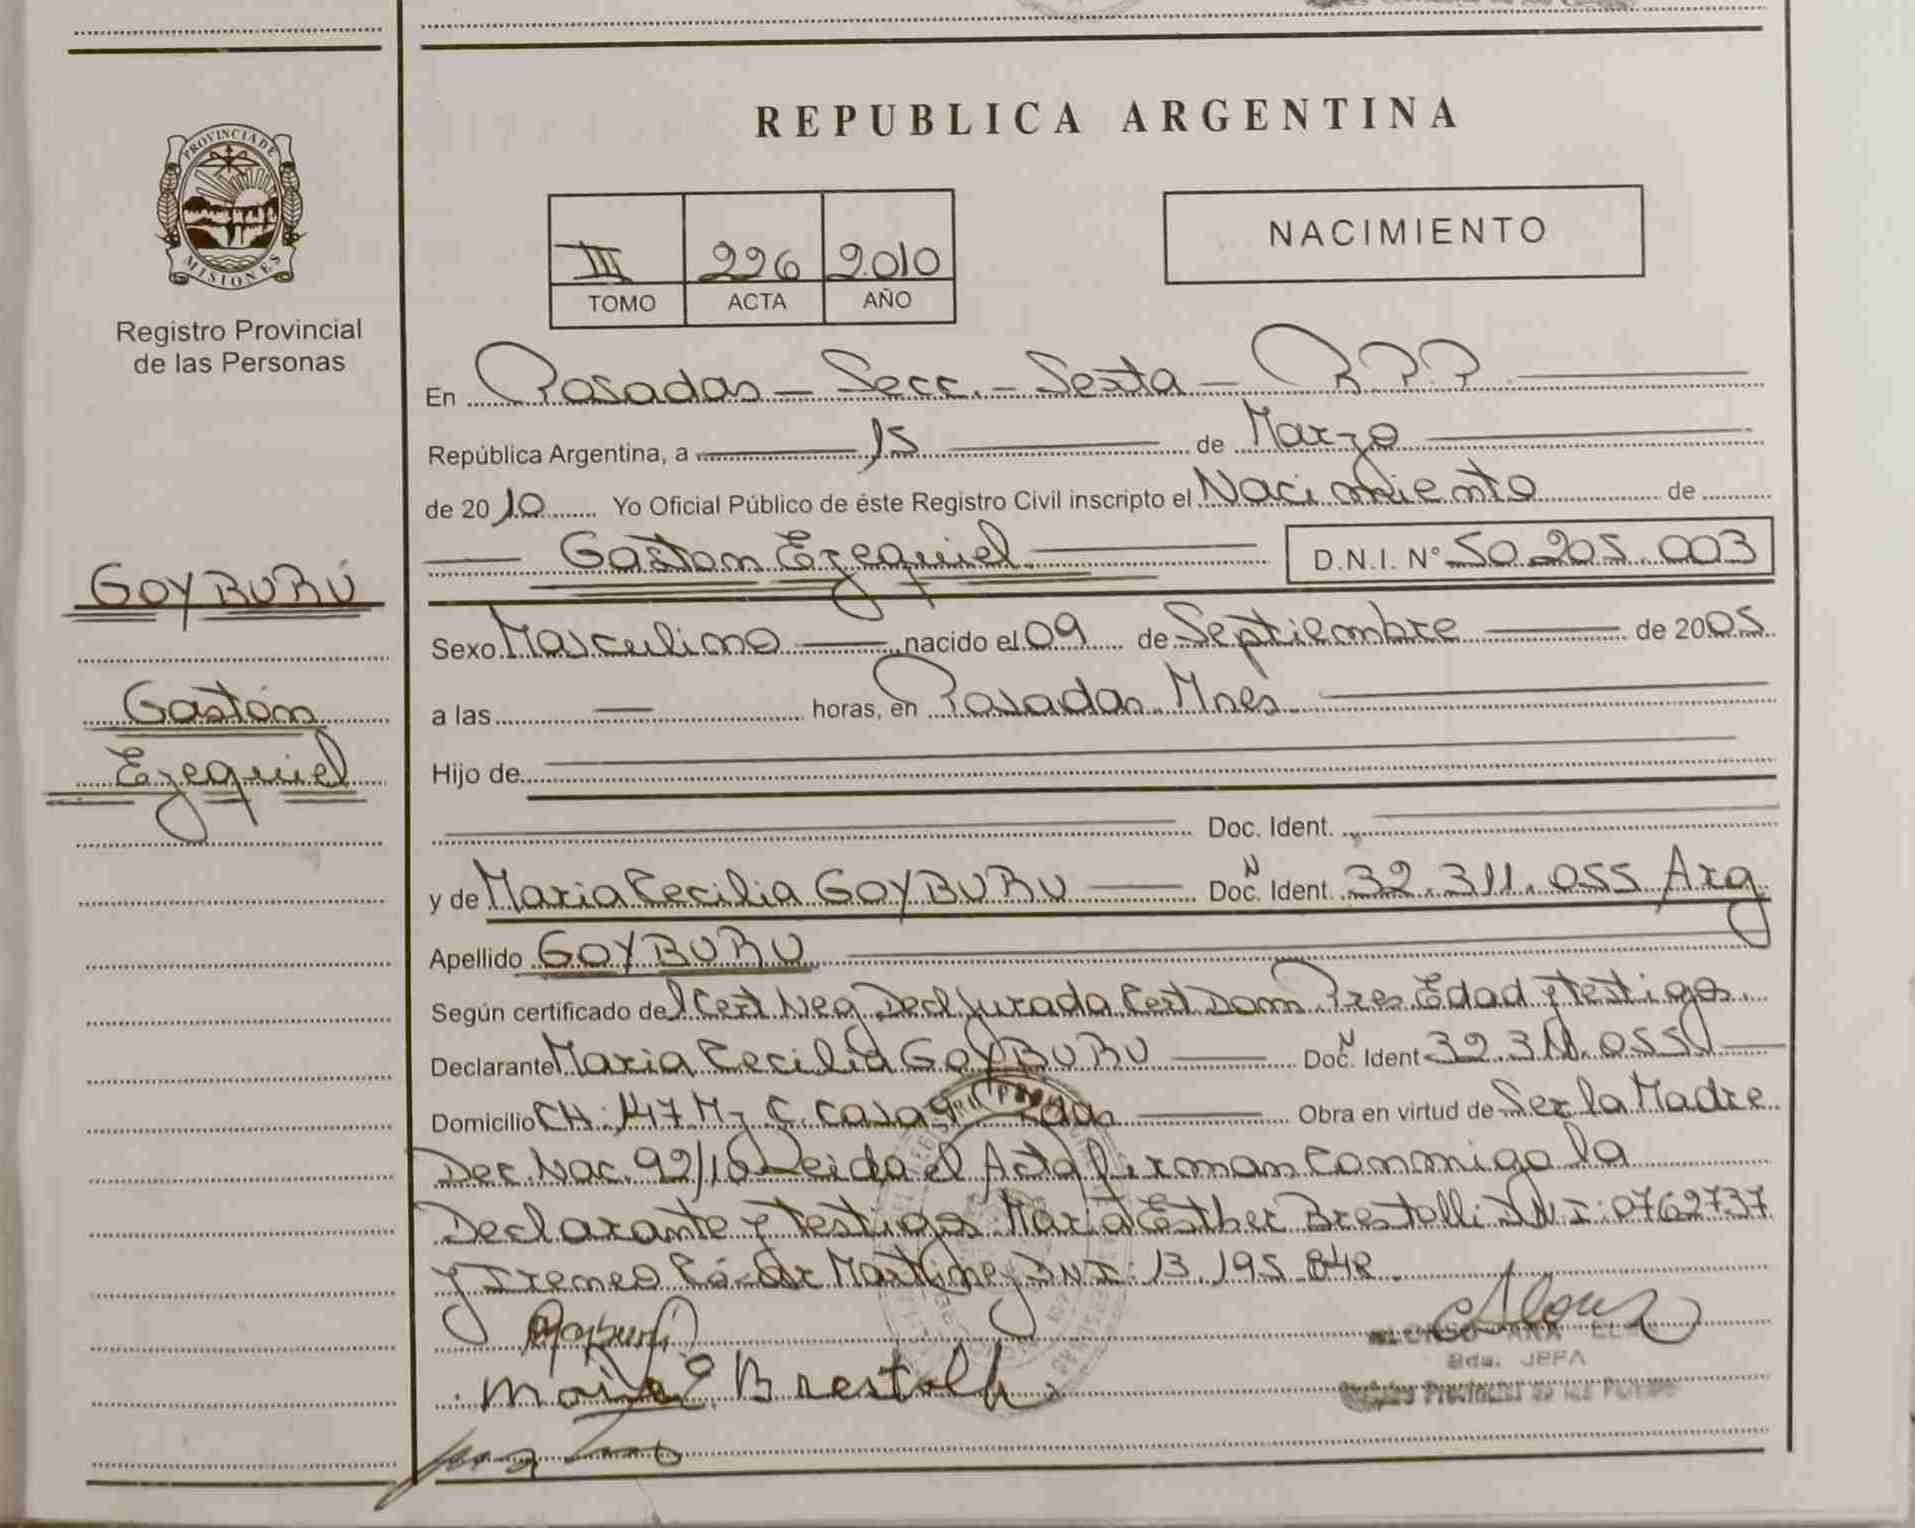 PROVINCIA DE
MISIONES
Registro Provincial
de las Personas
GOYBURÚ
Gastón
Ezequiel
REPUBLICA ARGENTINA
III 226 2010
TOMO ACTA AÑO
NACIMIENTO
En Posadas - Secc. - Sexta - R.P.P.
República Argentina, a 15 de Marzo
de 2010 Yo Oficial Público de éste Registro Civil inscripto el Nacimiento de
Gastón Ezequiel D.N.I. Nº 50.205.003
Sexo Masculino nacido el 09 de Septiembre de 2005
a las — horas, en Posadas Mnes
Hijo de
Doc. Ident.
y de Maria Cecilia GOYBURU Doc. Ident. 32.311.055 Arg
Apellido GOYBURU
Según certificado del Cert Neg Decl Jurada Cert Dom Pres Edad y testigos.
Declarante Maria Cecilia GOYBURU Doc. Ident 32.311.055
Domicilio CH: 147 Mz C. casa Obra en virtud de Ser la Madre
Dec. Nac. 92/10 Leida el Acta firman conmigo la
Declarante y testigos Maria Esther Brestolli DNI: 0762737
y Ireneo César Martinez DNI: 13.195.848
Maria Brestolli
Bda. JEFA
Registro Provincial de las Personas